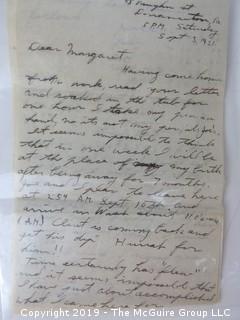 Vaughn St
5 P.M. Saturday
Sept 3, 1921
Dear Margaret.
Having come home
from work, read your letter
and soaked in the tub for
one hour I take my pen in
hand, no its not my pen,
It seems impossible to think
that in one week I will be
at the place of my birth
after being away for 7 months.
you and I plan to leave here
at 2:54 A.M. Sept 10th and
arrive in Wash about
(A.M) Clint is coming back and
get his dip. Hurrah for
him!!
Time certainly has "flew"
and it seems impossible that
I have just about accomplished
what I came here for
Copyright 2019 - The McGuire Collection